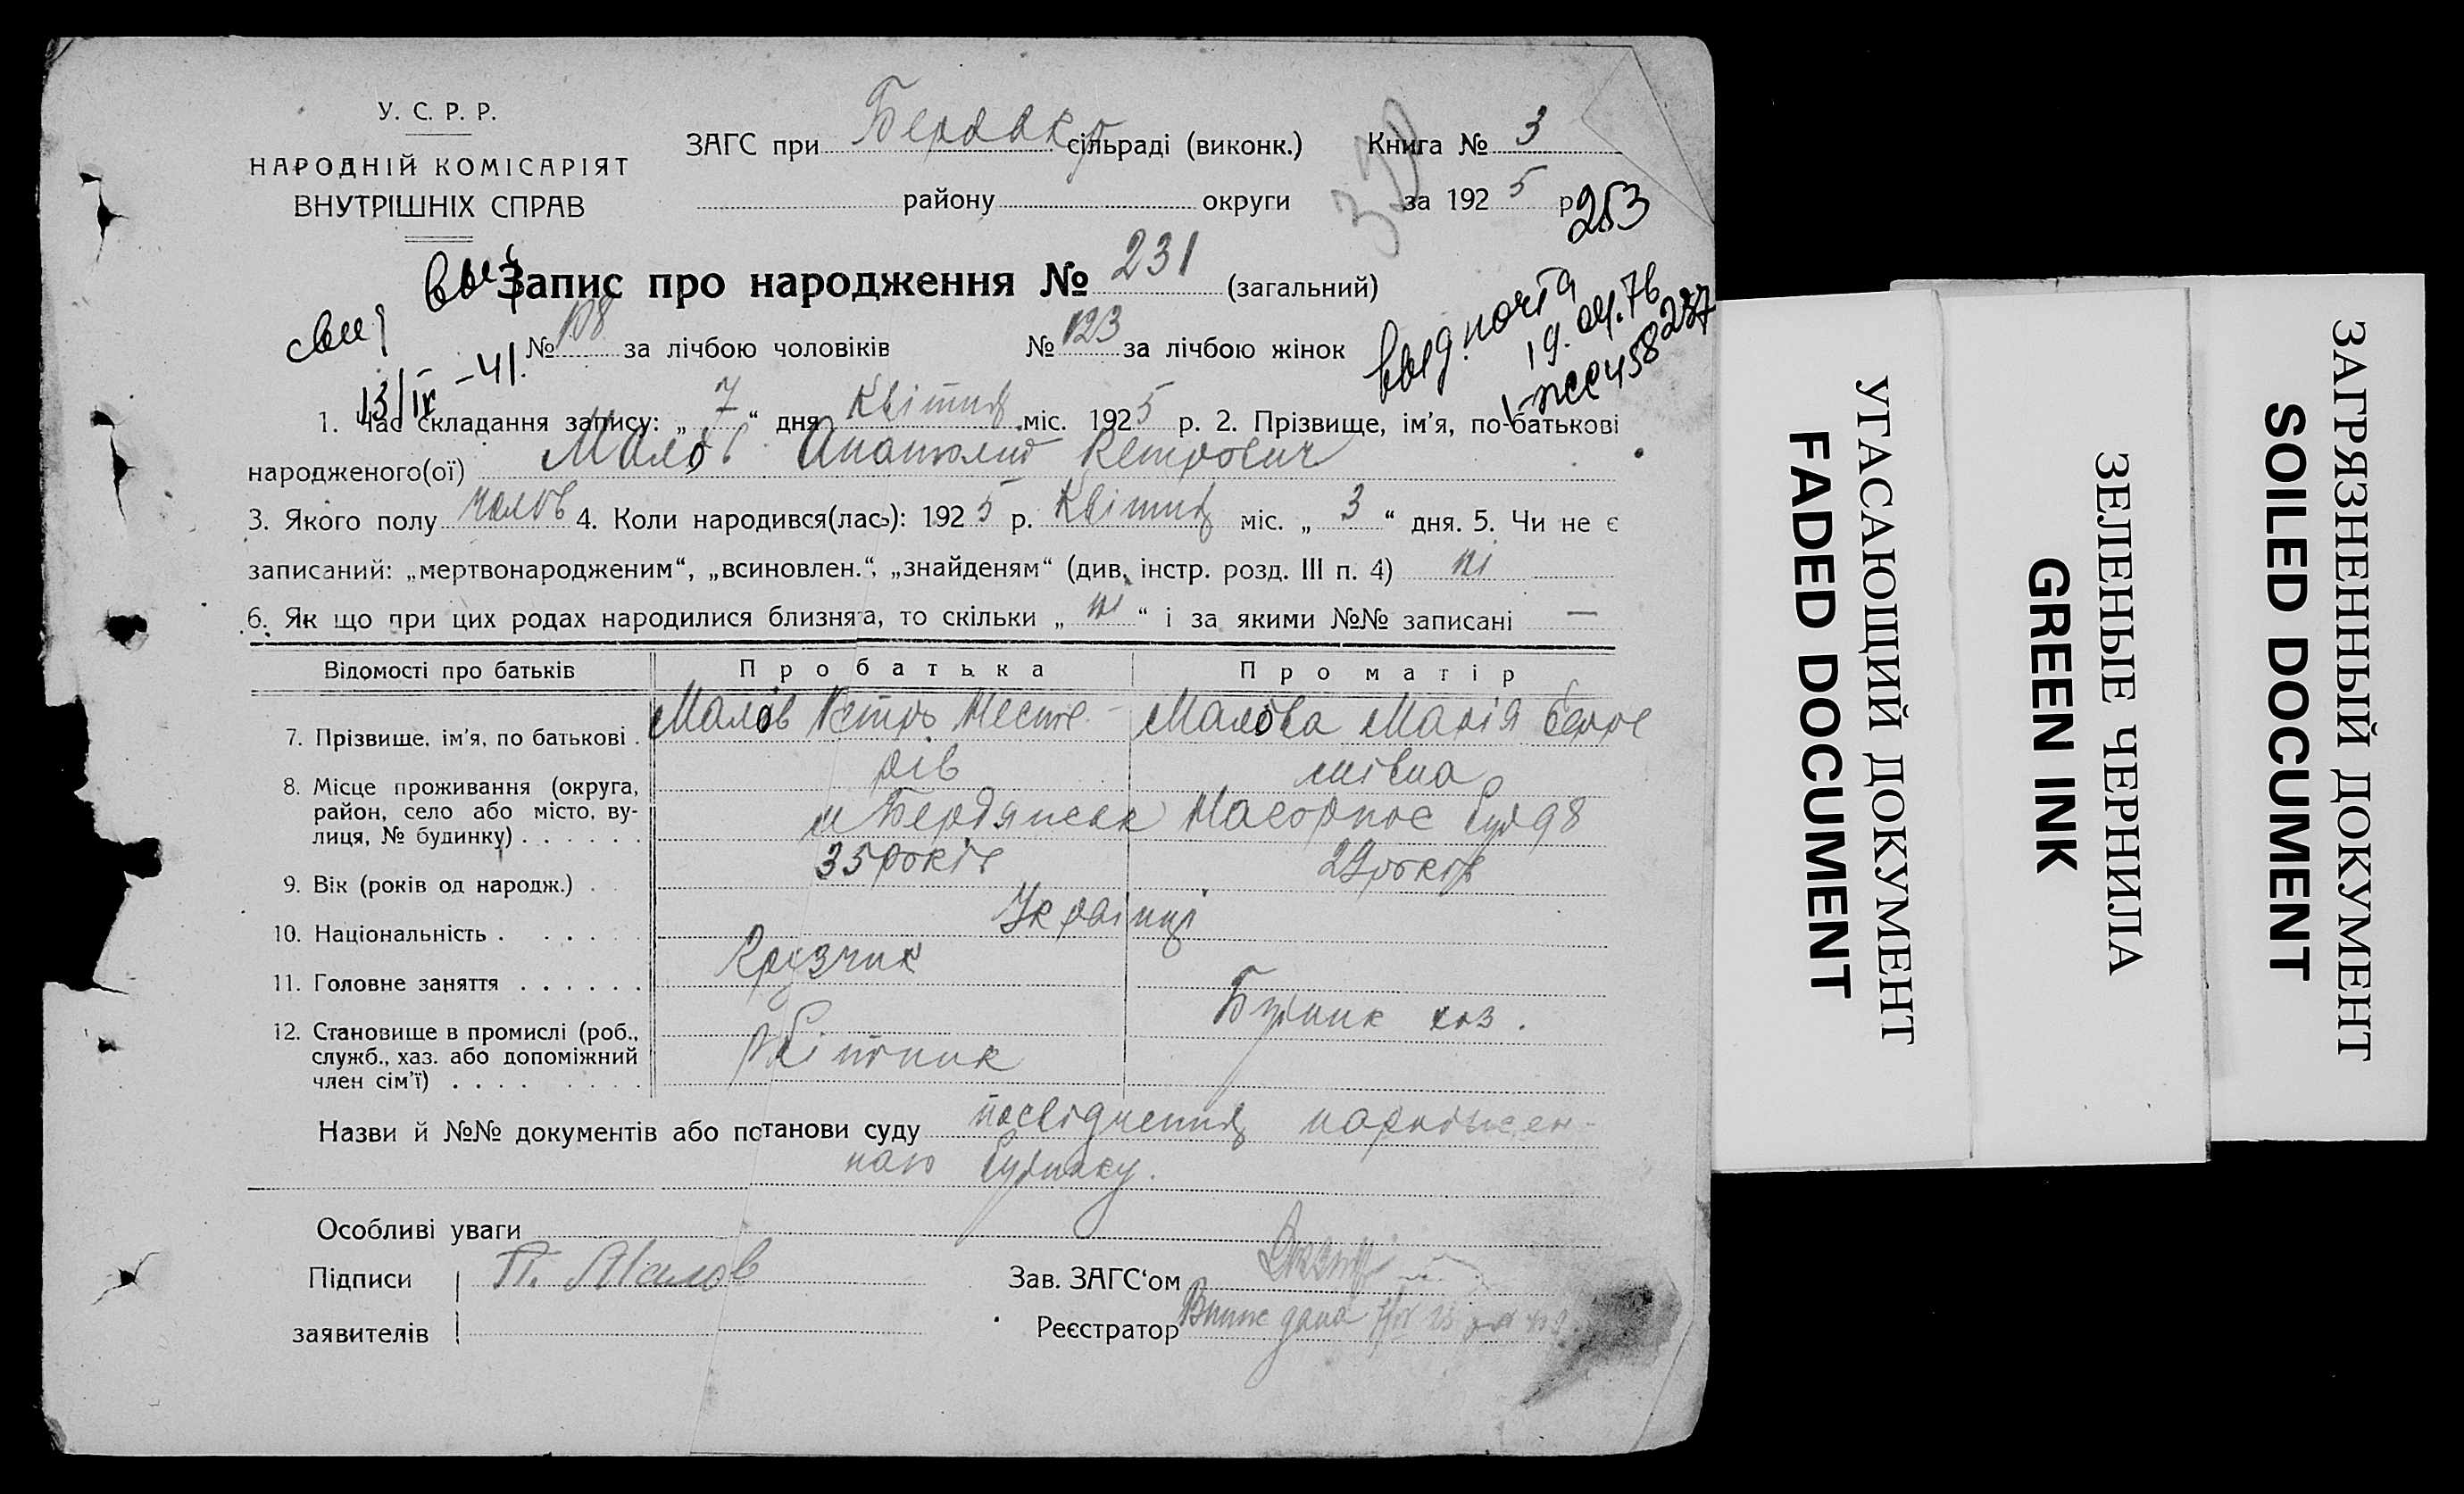 У. С. Р. Р.
НАРОДНІЙ КОМІСАРІЯТ
ВНУТРІШНІХ СПРАВ
ЗАГС при сільраді (виконк.) Книга № 3
району округи за 1925 р
253
Запис про народження № 231 (загальний)
№ 108 за лічбою чоловіків № 123 за лічбою жінок
13/IV -41.
19.04.76
1. Час складання запису: „ 7 “ дня Квітня міс. 1925 р. 2. Прізвище, ім'я, по-батькові
народженого(ої) Малов Анатолий Петрович
3. Якого полу чолов 4. Коли народився(лась): 1925 р. Квітня міс. „ 3 “ дня. 5. Чи не є
записаний: „мертвонародженим“, „всиновлен.“, „знайденям“ (див. інстр. розд. III п. 4) ні
6. Як що при цих родах народилися близнята, то скільки „ ні “ і за якими №№ записані —
Відомості про батьків Про батька Про матір
7. Прізвище, ім'я, по батькові . Малов Петро Несте- Малова Марія
рів
8. Місце проживання (округа,
район, село або місто, ву-
лиця, № будинку) . . . . . . м Бердянськ Нагорное 98
9. Вік (років од народж.) . 35 років 29 років
10. Національність . . . . . Українці
11. Головне заняття . . . . . . Грузчик
12. Становище в промислі (роб.,
служб., хаз. або допоміжний
член сім'ї) . . . . . . . . робітник хоз.
Назви й №№ документів або постанови суду посвідчення
будинку.
Особливі уваги
Підписи П. Малов Зав. ЗАГС'ом
заявителів Реєстратор
УГАСАЮЩИЙ ДОКУМЕНТ
FADED DOCUMENT
ЗЕЛЕНЫЕ ЧЕРНИЛА
GREEN INK
ЗАГРЯЗНЕННЫЙ ДОКУМЕНТ
SOILED DOCUMENT